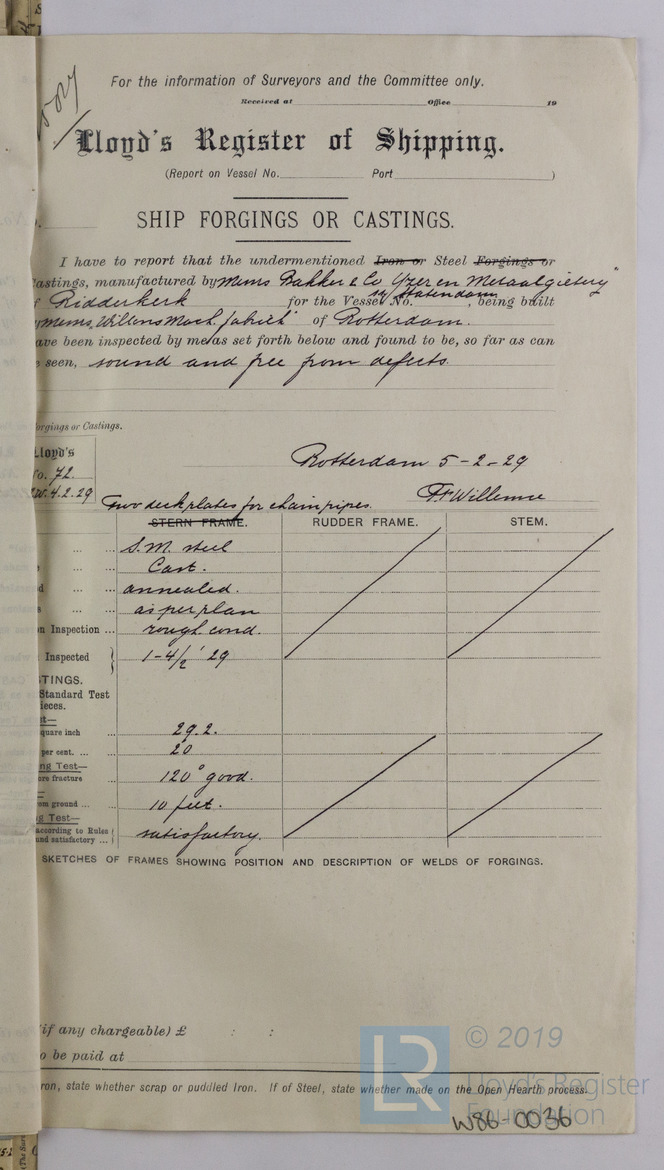 For the information of Surveyors and the Committee only.
Received at Office 19
Copy
Lloyd's Register of Shipping.
(Report on Vessel No. Port )
SHIP FORGINGS OR CASTINGS.
I have to report that the undermentioned Iron or Steel Forgings or
Castings, manufactured by Messrs Bakker & Co Yzer en Metaalgietery"
f Ridderkerk for the Vessel No. ss Statendam, being built
y Messrs, Wiltons Mach. fabriek" of Rotterdam.
ave been inspected by me/as set forth below and found to be, so far as can
e seen, sound and free from defects.
orgings or Castings.
Lloyd's
No. 72.
4.2.29
Rotterdam 5-2-29
Two deck plates for chain pipes.
STERN FRAME. RUDDER FRAME. STEM.
S.M. steel
Cast.
d annealed.
s as per plan
n Inspection ... rough cond.
Inspected 1-4/2 ' 29
TINGS.
Standard Test
ieces.
t—
quare inch 29.2.
per cent. ... 20
ng Test—
ore fracture 120° good.
om ground ... 10 feet.
g Test—
according to Rules
and satisfactory ... satisfactory.
SKETCHES OF FRAMES SHOWING POSITION AND DESCRIPTION OF WELDS OF FORGINGS.
(if any chargeable) £ : :
o be paid at
ron, state whether scrap or puddled Iron. If of Steel, state whether made on the Open Hearth process.
LR
© 2019
Lloyd's Register
Foundation
W86-0036